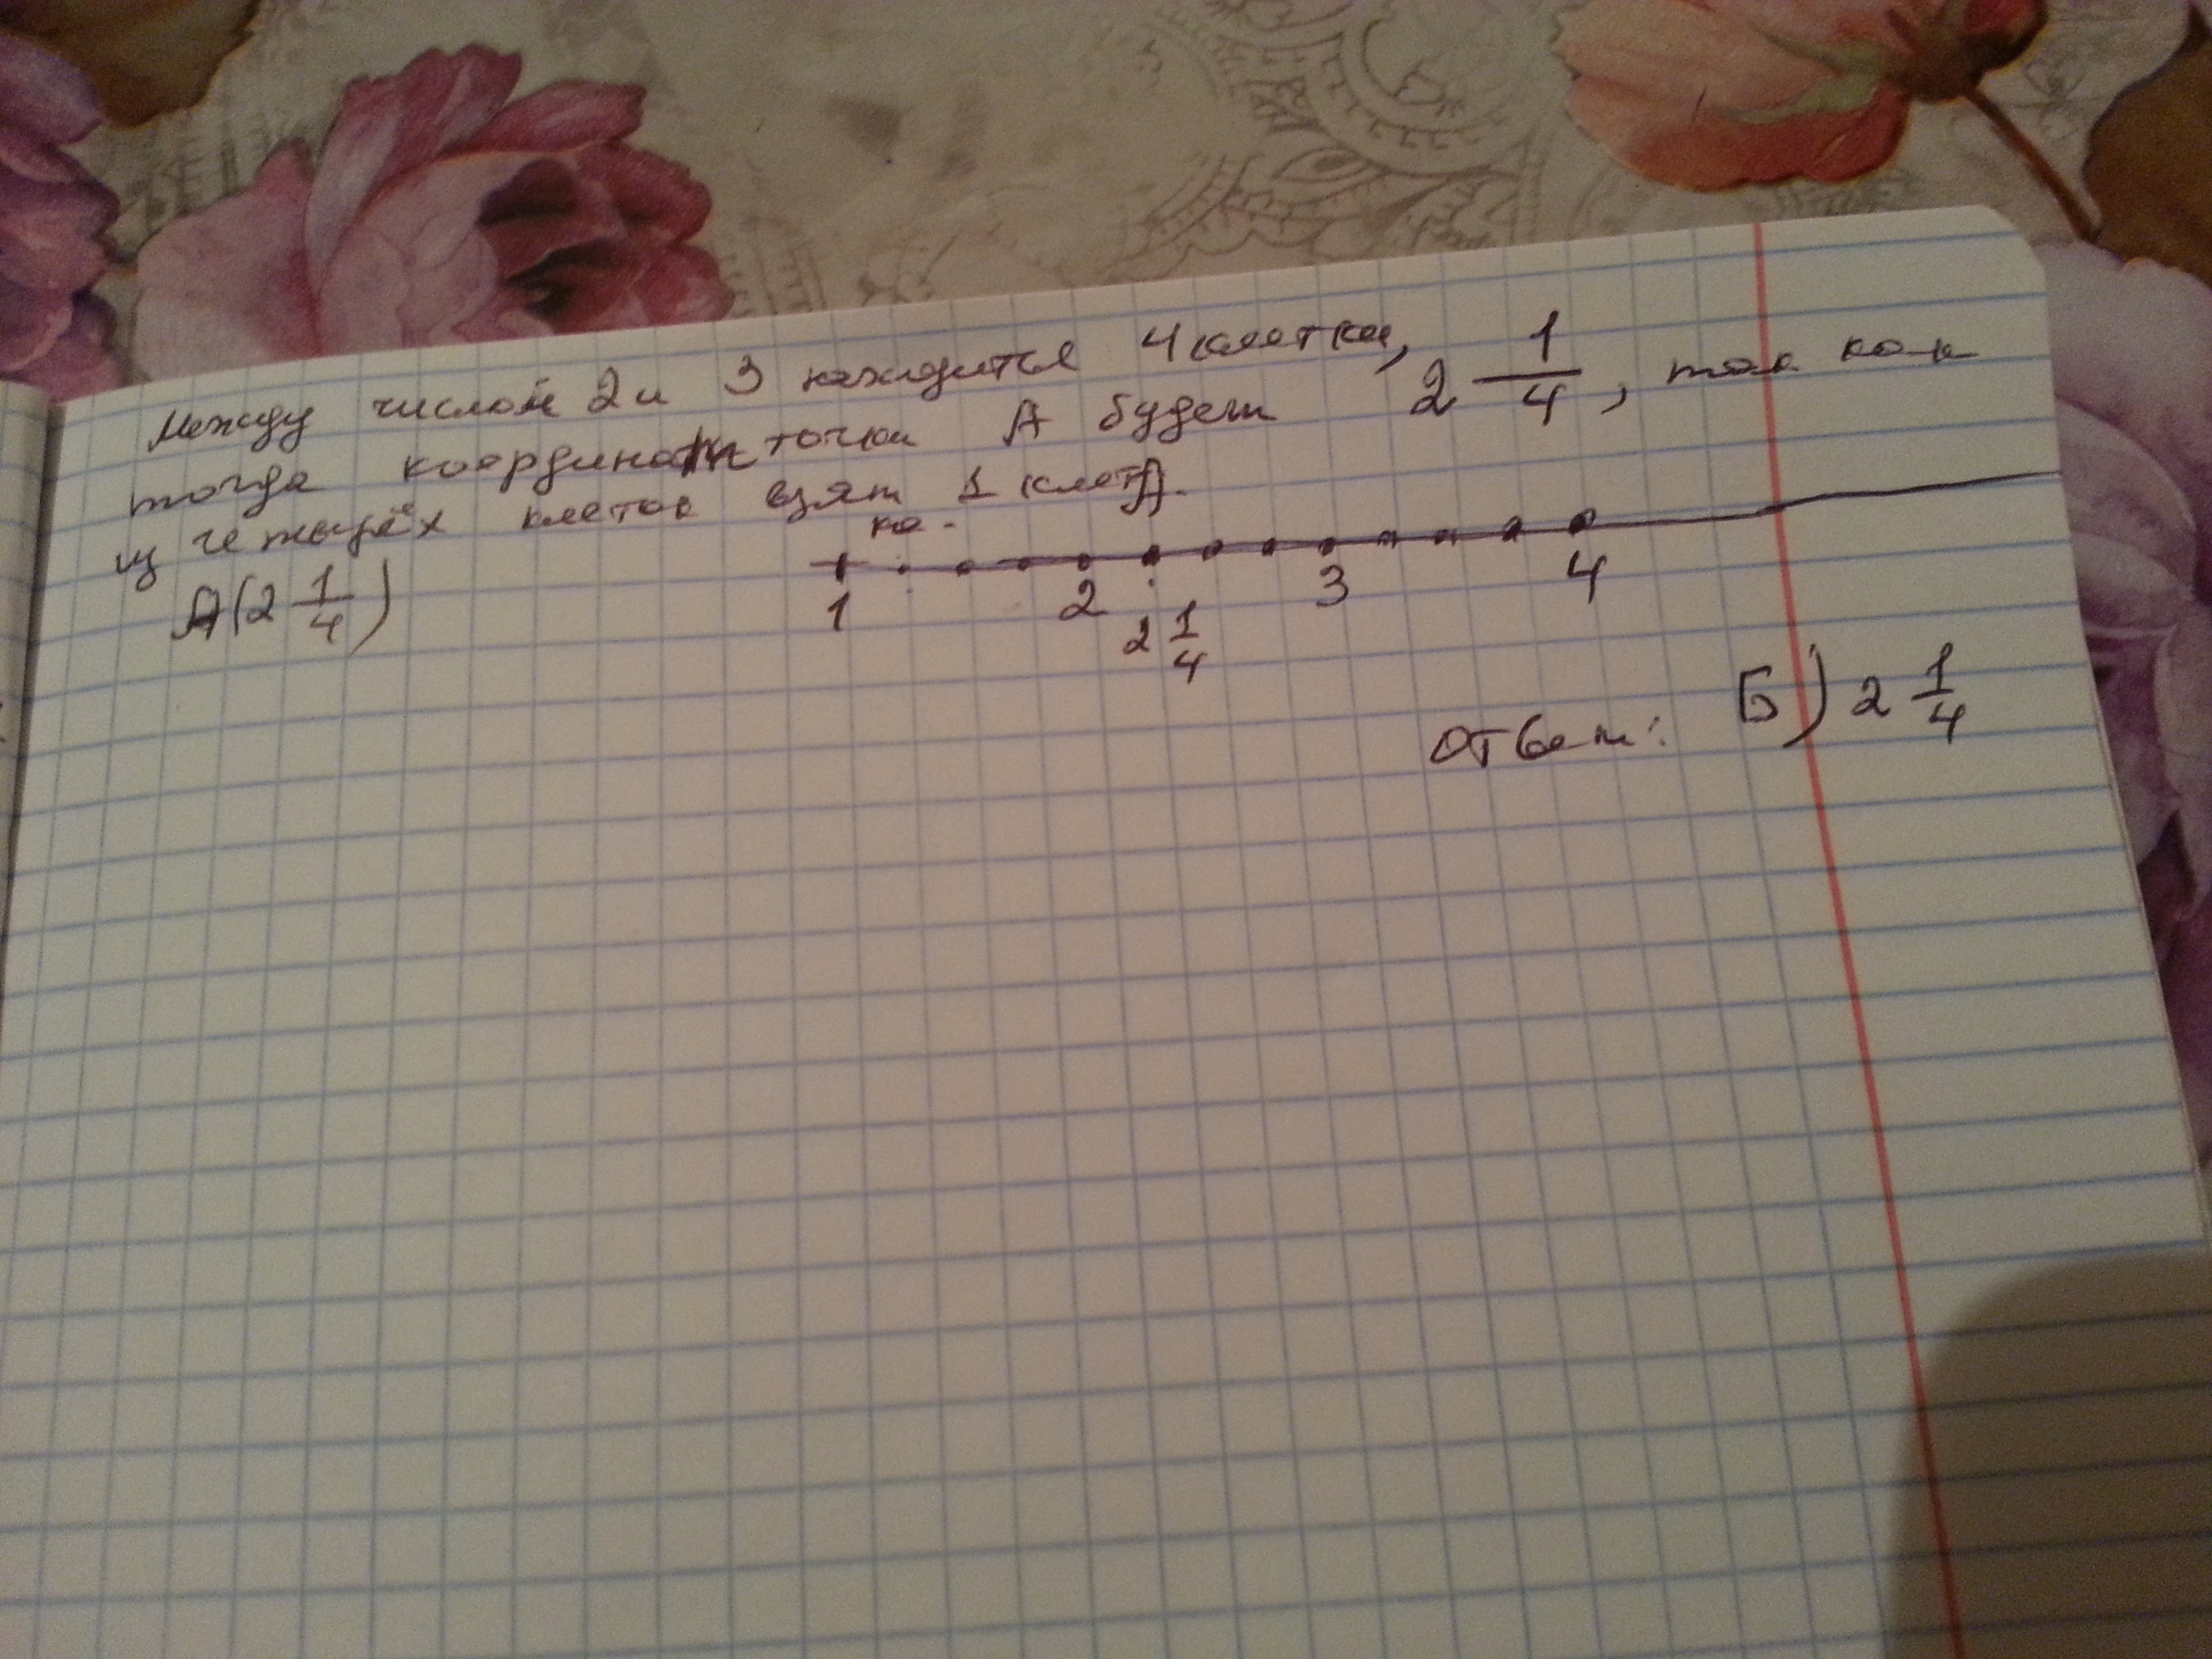 Между числом 2 и 3 находится 4 клетки,
тогда координаты точки А будет 2 1/4, так как
из четырёх клеток взят 1 клет
ка.
А
А(2 1/4)
1 2 3 4
2 1/4
Ответ: Б) 2 1/4